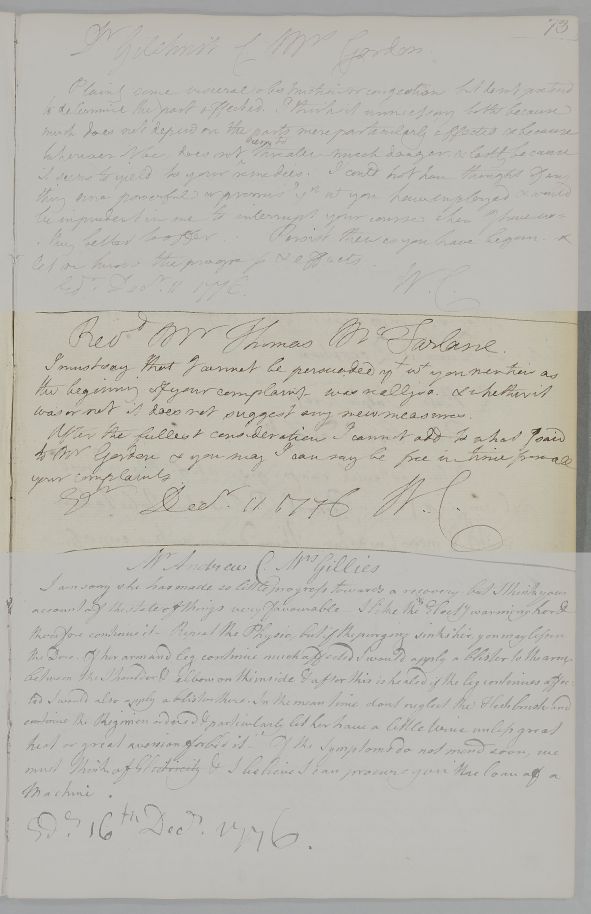 73
Dr Gilchrist C Mrs Gordon.
Plaint some visceral obstruction or congestion but dont pretend
to determine the part affected. I think it unnecessary both because
much does not depend on the parts more particularly affected & because
wherever  does not threaten much danger & lastly because
it seems to yield to your remedies. I could not have thought of any
thing more powerful or promising yn wt you have employed & would
be imprudent in me to interrupt your course when I have no
thing better to offer. Persist then as you have begun &
let me know the progress & effects.
Edr. Decr. 11 1776. W.C.
Revd Mr Thomas McFarlane.
I must say that I cannot be persuaded yt wt you mention as
the begining of your complaint was really so & whether it
was or not it does not suggest any new measures.
After the fullest consideration I cannot add to what I said
to Mr Gordon & you may I can say be free in time from all
your complaints
Edr Decr. 11 1776 W.C.
Mr Andrew C Mrs Gillies
I am sorry she has made so little progress towards a recovery but I think your
account of the state of things very favourable. I like the  warming her &
therefore continue it. Repeat the Physic, but if the purging sinks her, you may lessen
the Dose. If her arm and leg continue much affected I would apply a blister to the arm
between the Shoulder & elbow on the inside & after this is healed if the leg continues affec-
ted I would also apply a blister there. In the mean time dont neglect the flesh brush and
continue the Regimen ordered & particularly let her have a little wine unless great
heat or great aversion forbid it. If the Symptoms do not mend soon, we
must think of Electricity & I believe I can procure you the loan of a
Machine.
Edr. 16th Decr. 1776.